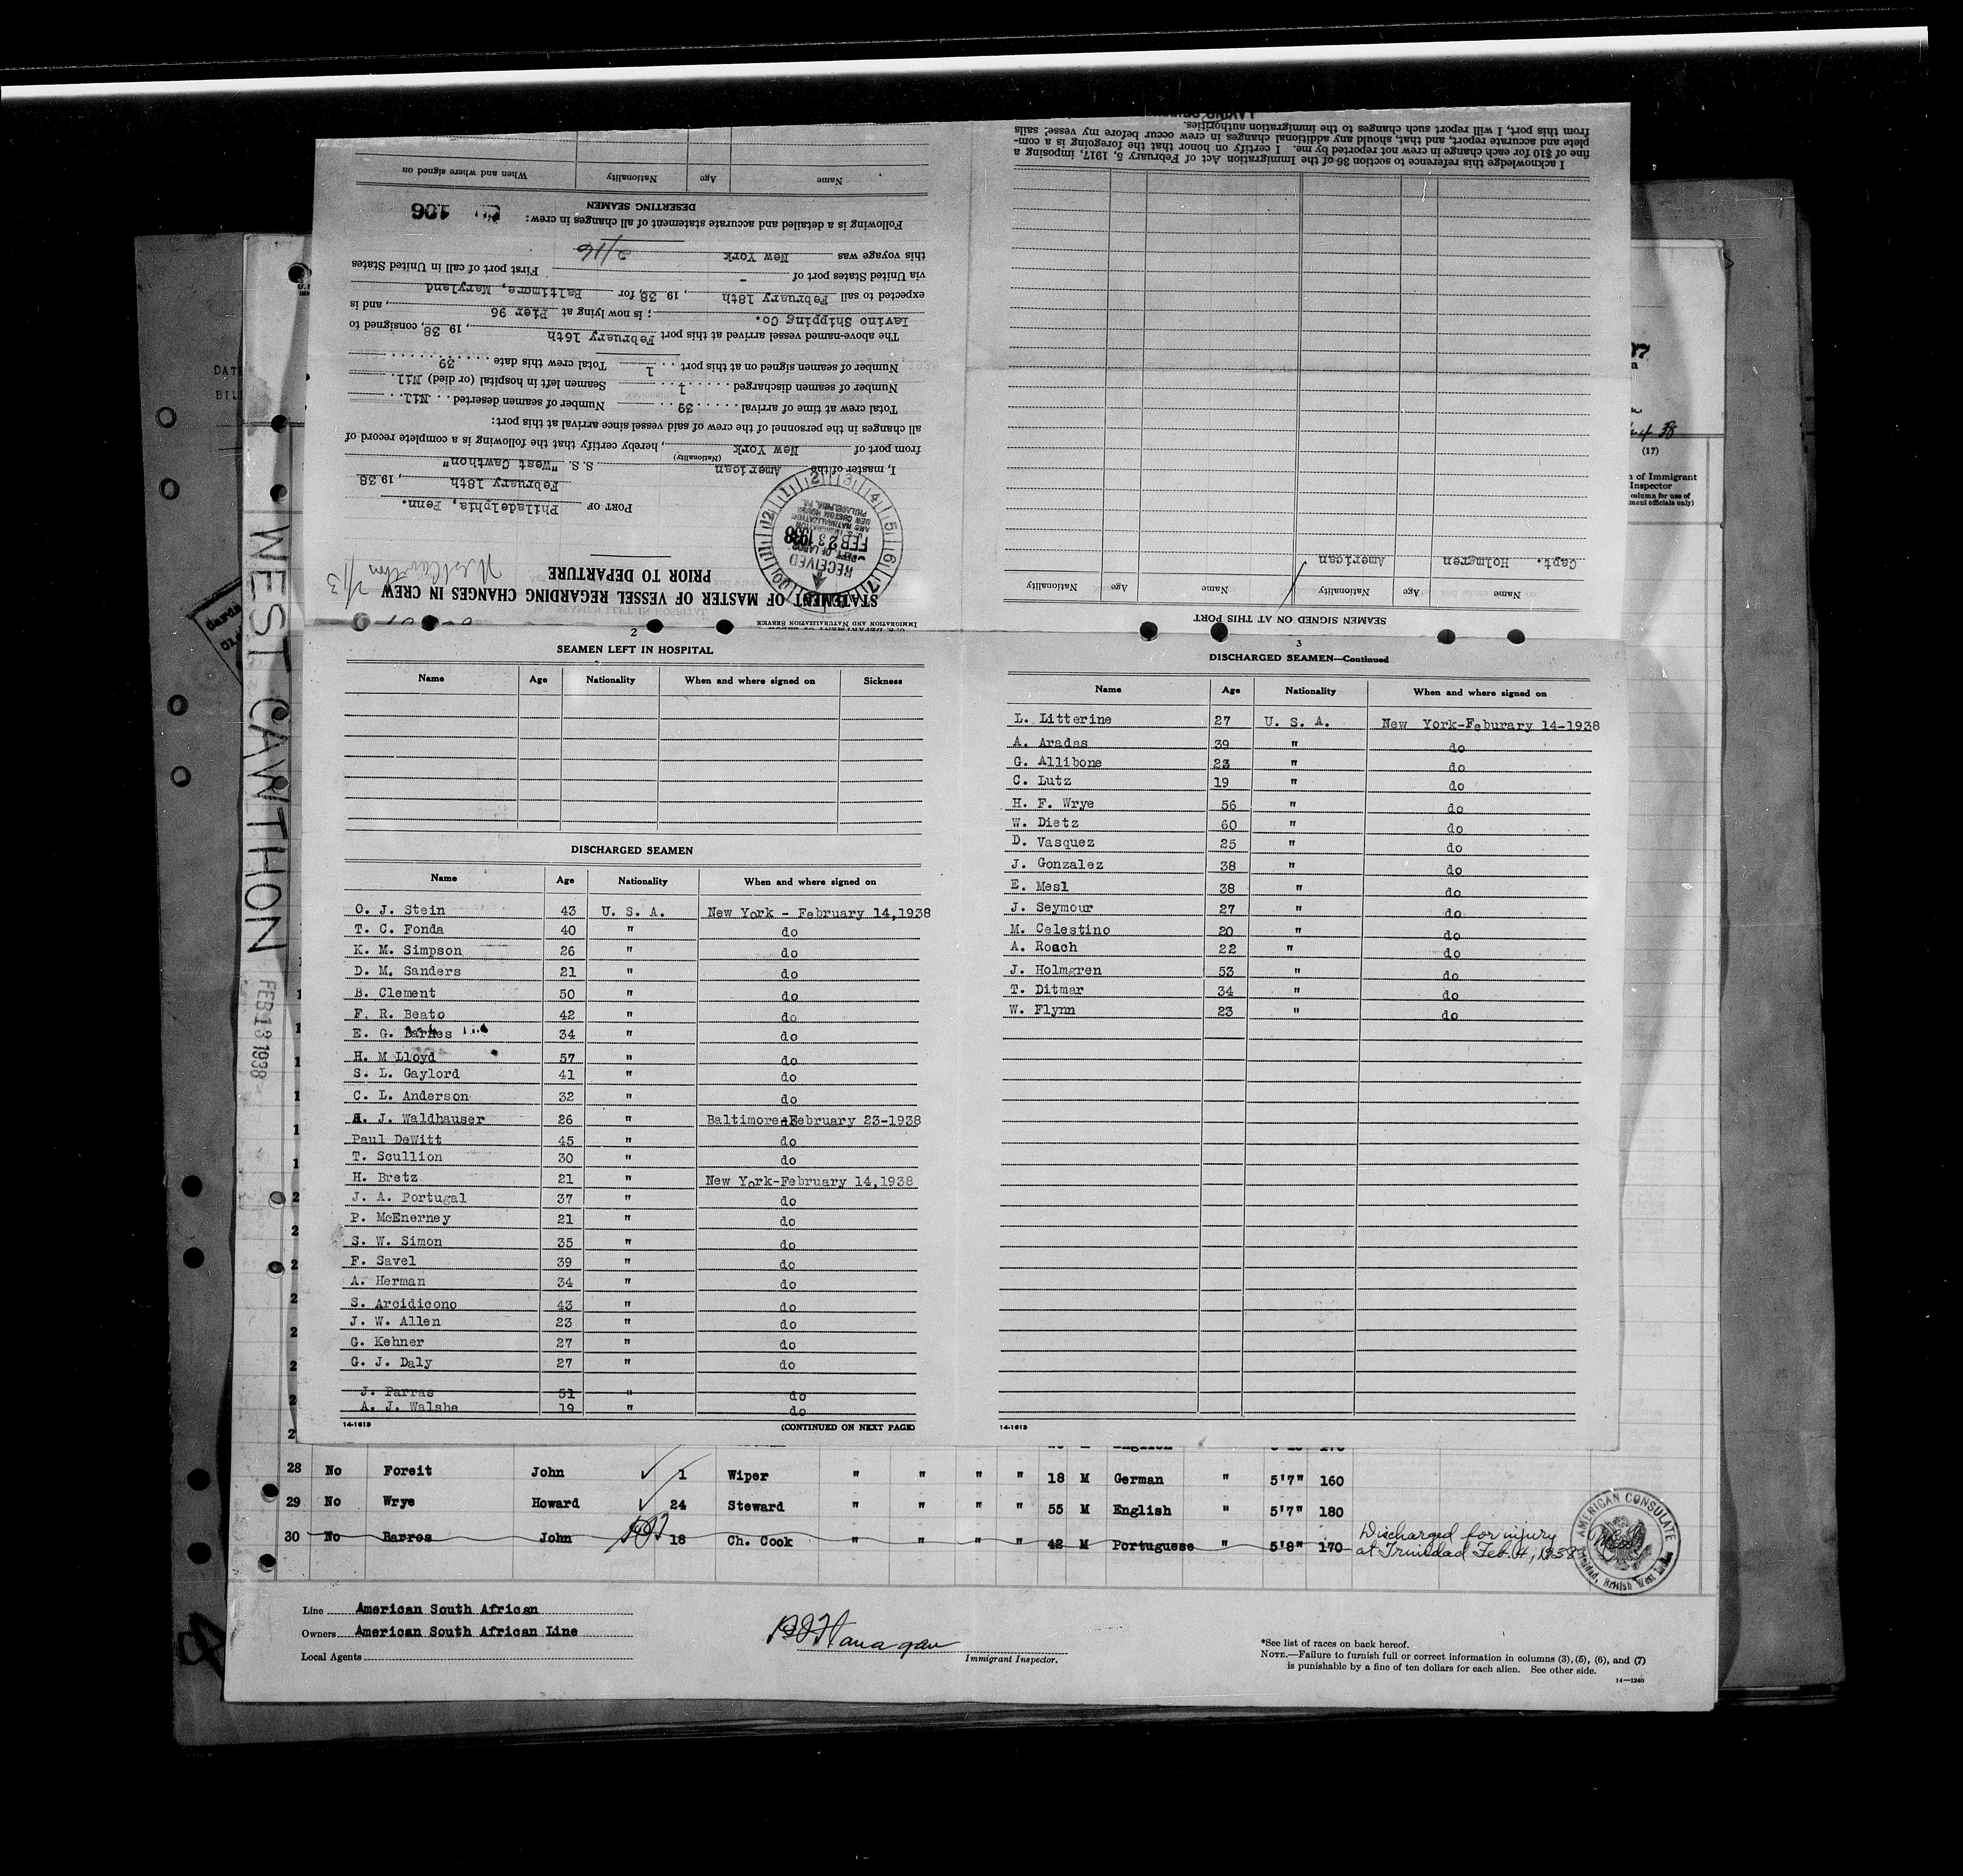 LAVINO SHIPPING
I acknowledge this reference to section 36 of the Immigration Act of February 5, 1917, imposing a
fine of $10 for each change in crew not reported by me. I certify on honor that the foregoing is a com-
plete and accurate report, and that, should any additional changes in crew occur before my vessel sails
from this port, I will report such changes to the immigration authorities.
SEAMEN SIGNED ON AT THIS PORT
Name Age Nationality Name Age Nationality
Capt. Holmgren American
IMMIGRATION AND NATURALIZATION SERVICE
STATEMENT OF MASTER OF VESSEL REGARDING CHANGES IN CREW
PRIOR TO DEPARTURE
West Cawthon 2/13
RECEIVED
DEPT OF LABOR
FEB 23 1938
AND NATURALIZATION
NEW CUSTOM HOUSE
PHILADELPHIA, PA.
PORT OF Philadelphia, Penn.
February 18th, 1938
I, master of the American S.S. "West Cawthon"
(Nationality)
from port of New York, hereby certify that the following is a complete record of
all changes in the personnel of the crew of said vessel since arrival at this port:
Total crew at time of arrival 39 Number of seamen deserted Nil
Number of seamen discharged 1 Seamen left in hospital (or died) Nil
Number of seamen signed on at this port 1 Total crew this date 39
The above-named vessel arrived at this port February 16th, 1938, consigned to
Lavino Shipping Co.; is now lying at Pier 96, and is
expected to sail February 18th, 1938, for Baltimore, Maryland
via United States port of - First port of call in United States
this voyage was New York 2/16
Following is a detailed and accurate statement of all changes in crew:
106
DESERTING SEAMEN
Name Age Nationality When and where signed on
2
SEAMEN LEFT IN HOSPITAL
Name Age Nationality When and where signed on Sickness
DISCHARGED SEAMEN
Name Age Nationality When and where signed on
O. J. Stein 43 U. S. A. New York - February 14,1938
T. C. Fonda 40 " do
K. M. Simpson 26 " do
D. M. Sanders 21 " do
B. Clement 50 " do
F. R. Beato 42 " do
E. G. Barnes 34 " do
H. M Lloyd 57 " do
S. L. Gaylord 41 " do
C. L. Anderson 32 " do
A. J. Waldhauser 26 " Baltimore-February 23-1938
Paul DeWitt 45 " do
T. Scullion 30 " do
H. Bretz 21 " New York-February 14,1938
J. A. Portugal 37 " do
P. McEnerney 21 " do
S. W. Simon 35 " do
F. Savel 39 " do
A. Herman 34 " do
S. Arcidicono 43 " do
J. W. Allen 23 " do
G. Kehner 27 " do
G. J. Daly 27 " do
J. Parras 51 " do
A. J. Walshe 19 " do
14-1613 (CONTINUED ON NEXT PAGE)
3
DISCHARGED SEAMEN—Continued
Name Age Nationality When and where signed on
L. Litterine 27 U. S. A. New York-Feburary 14-1938
A. Aradas 39 " do
G. Allibone 23 " do
C. Lutz 19 " do
H. F. Wrye 56 " do
W. Dietz 60 " do
D. Vasquez 25 " do
J. Gonzalez 38 " do
E. Mesl 38 " do
J. Seymour 27 " do
M. Celestino 20 " do
A. Roach 22 " do
J. Holmgren 53 " do
T. Ditmar 34 " do
W. Flynn 23 " do
14-1613
WEST CAWTHON
FEB 13 1938
(17)
of Immigrant
Inspector
column for use of
ment officials only)
28 No Foreit John 1 Wiper " " " " 18 M German " 5'7" 160
29 No Wrye Howard 24 Steward " " " " 55 M English " 5'7" 180
30 No Barros John 18 Ch. Cook " " " " 42 M Portuguese " 5'8" 170 Discharged for injury
at Trinidad Feb. 4, 1938
AMERICAN CONSULATE
Trinidad, British West Indies
Line American South African
Owners American South African Line
Local Agents
Immigrant Inspector.
*See list of races on back hereof.
NOTE.—Failure to furnish full or correct information in columns (3), (5), (6), and (7)
is punishable by a fine of ten dollars for each alien. See other side.
14—1240